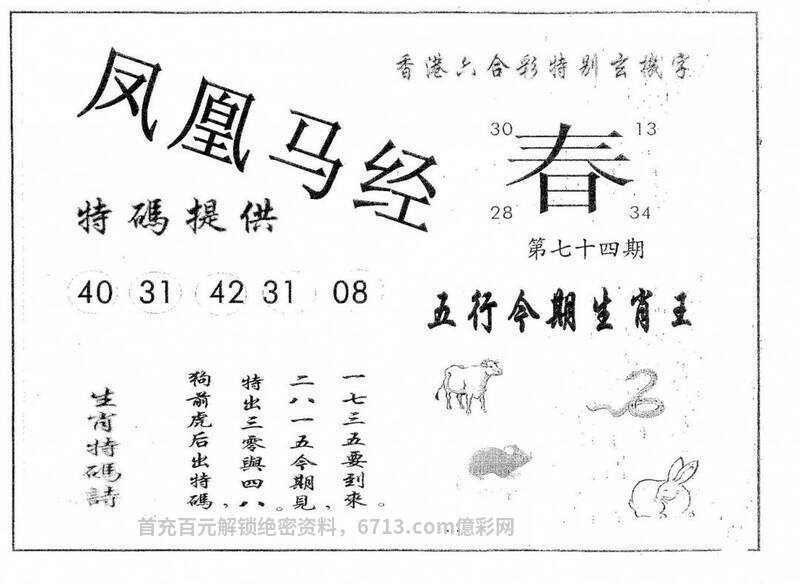 凤凰马经
香港六合彩特别玄機字
30 13
春
28 34
第七十四期
特碼提供
40 31 42 31 08
五行今期生肖王
生肖特碼詩
一七三五要到來，
二八一五今期見。
特出三零與四八，
狗前虎后出特碼。
首充百元解锁绝密资料，6713.com億彩网